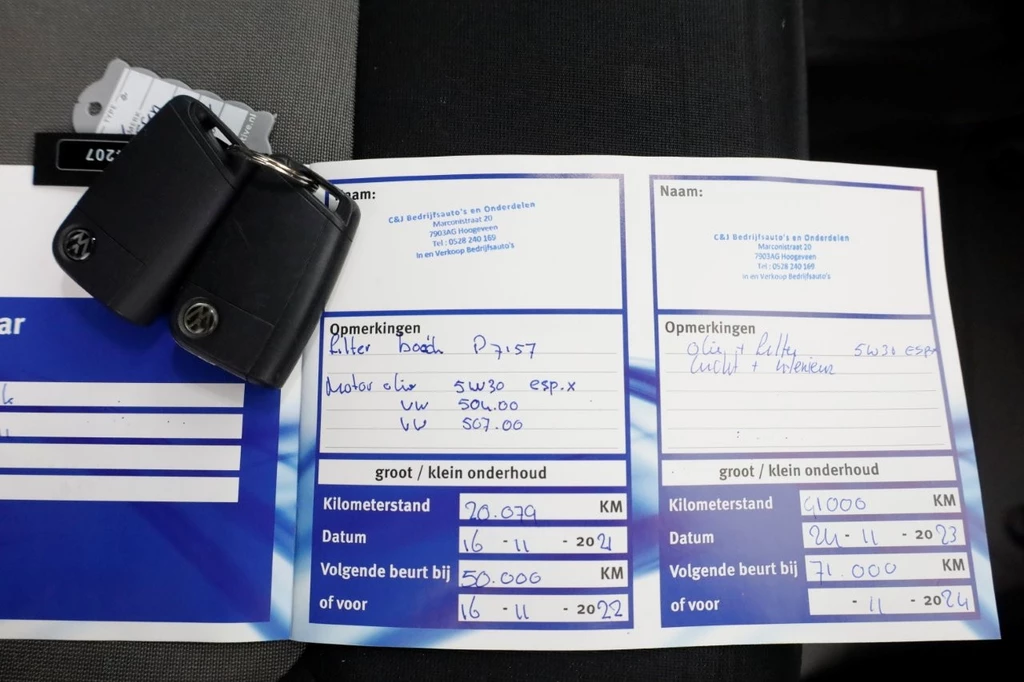 207
ar
Naam:
C&J Bedrijfsauto's en Onderdelen
Marconistraat 20
7903AG Hoogeveen
Tel : 0528 240 169
In en Verkoop Bedrijfsauto's
Opmerkingen
filter bosch P7157
Motor olie 5W30 esp.x
VW 504.00
VW 507.00
groot / klein onderhoud
Kilometerstand 20.079 KM
Datum 16 - 11 - 2021
Volgende beurt bij 50.000 KM
of voor 16 - 11 - 2022
Naam:
C&J Bedrijfsauto's en Onderdelen
Marconistraat 20
7903AG Hoogeveen
Tel : 0528 240 169
In en Verkoop Bedrijfsauto's
Opmerkingen
olie + filter 5W30 espx
lucht + interieur
groot / klein onderhoud
Kilometerstand 41000 KM
Datum 24 - 11 - 2023
Volgende beurt bij 71.000 KM
of voor - 11 - 2024